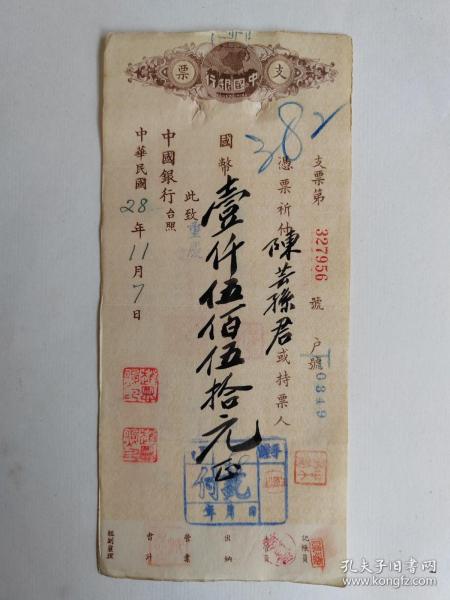 支票
中國銀行
382
支票第 327956 號 戶號 T0349
憑票祈付 陳芸孫君 或持票人
國幣 壹仟伍佰伍拾元正
此致 重慶
中國銀行台照
中華民國 28 年 11 月 7 日
付訖
記帳員
出納
營業
會計
孔夫子旧书网